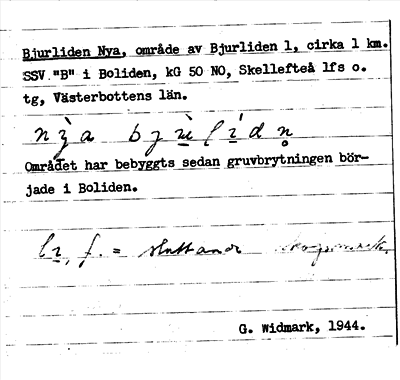 Bjurliden Nya, område av Bjurliden 1, cirka 1 km.
SSV "B" i Boliden, kG 50 NO, Skellefteå lfs o.
tg, Västerbottens län.
Området har bebyggts sedan gruvbrytningen bör-
jade i Boliden.
f. = sluttande
G. Widmark, 1944.